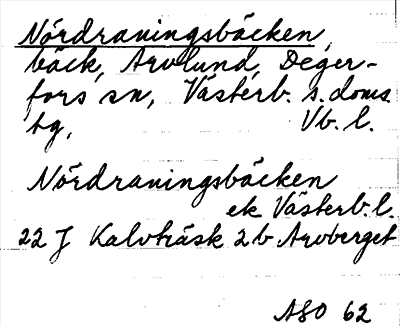 Nördraningsbäcken,
bäck, Arvlund, Deger-
fors sn, Västerb. s. doms.
tg, Vb. l.
Nördraningsbäcken
ek Västerb. l.
22 J Kalvträsk 2b Arvberget
ASO 62